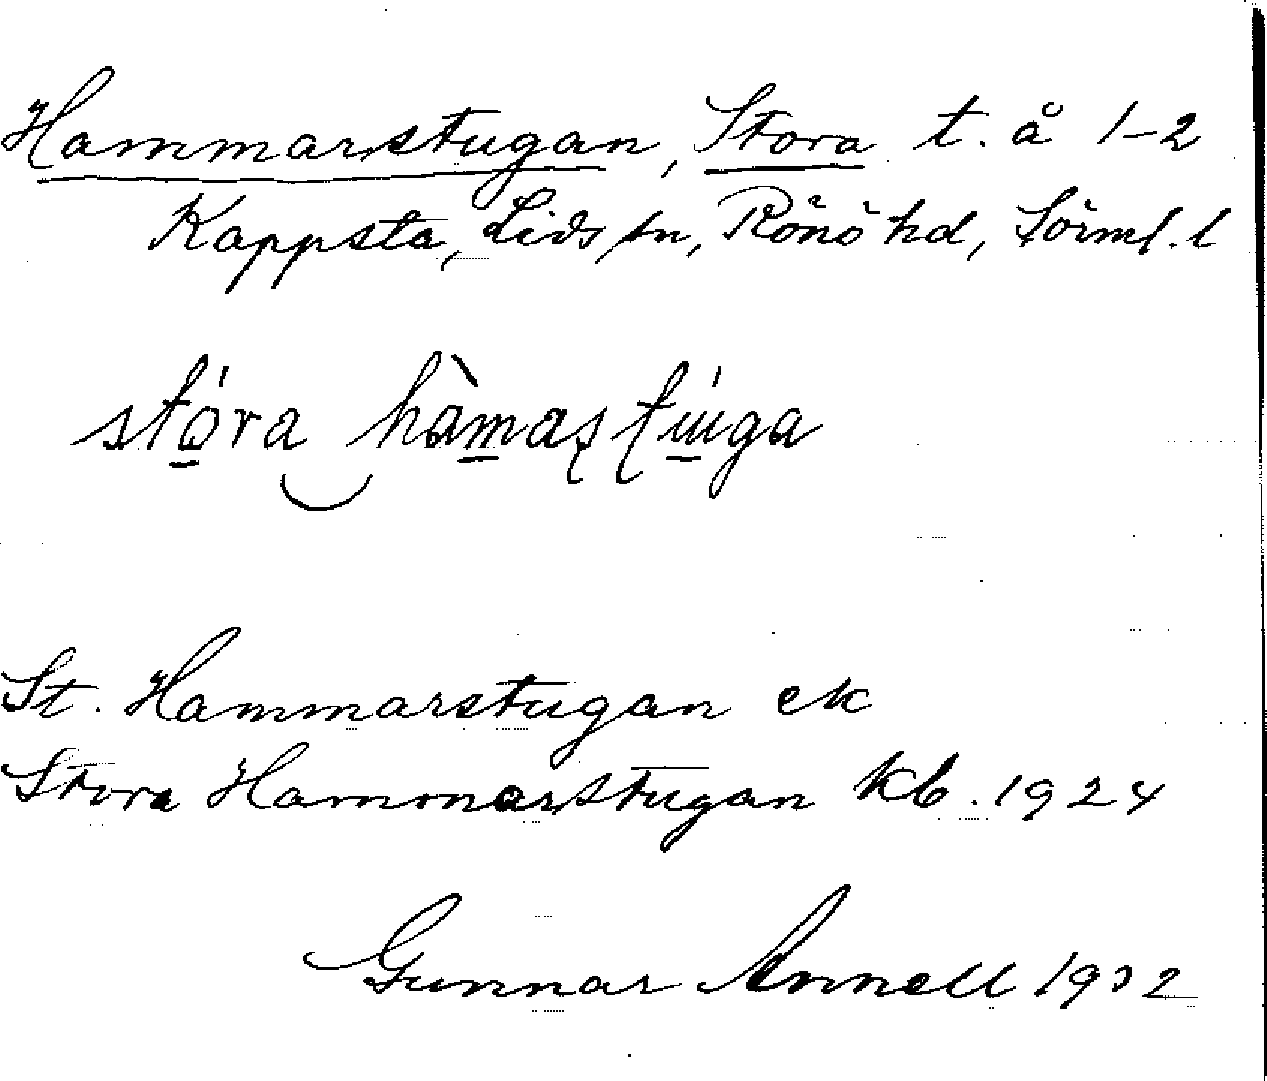 Hammarstugan, Stora t. å 1-2
Kappsta, Lids sn, Rönö hd, Sörml. l
stóra hàmaʂʈúga
St. Hammarstugan ek
Stora Hammarstugan kb. 1924
Gunnar Annell 1932